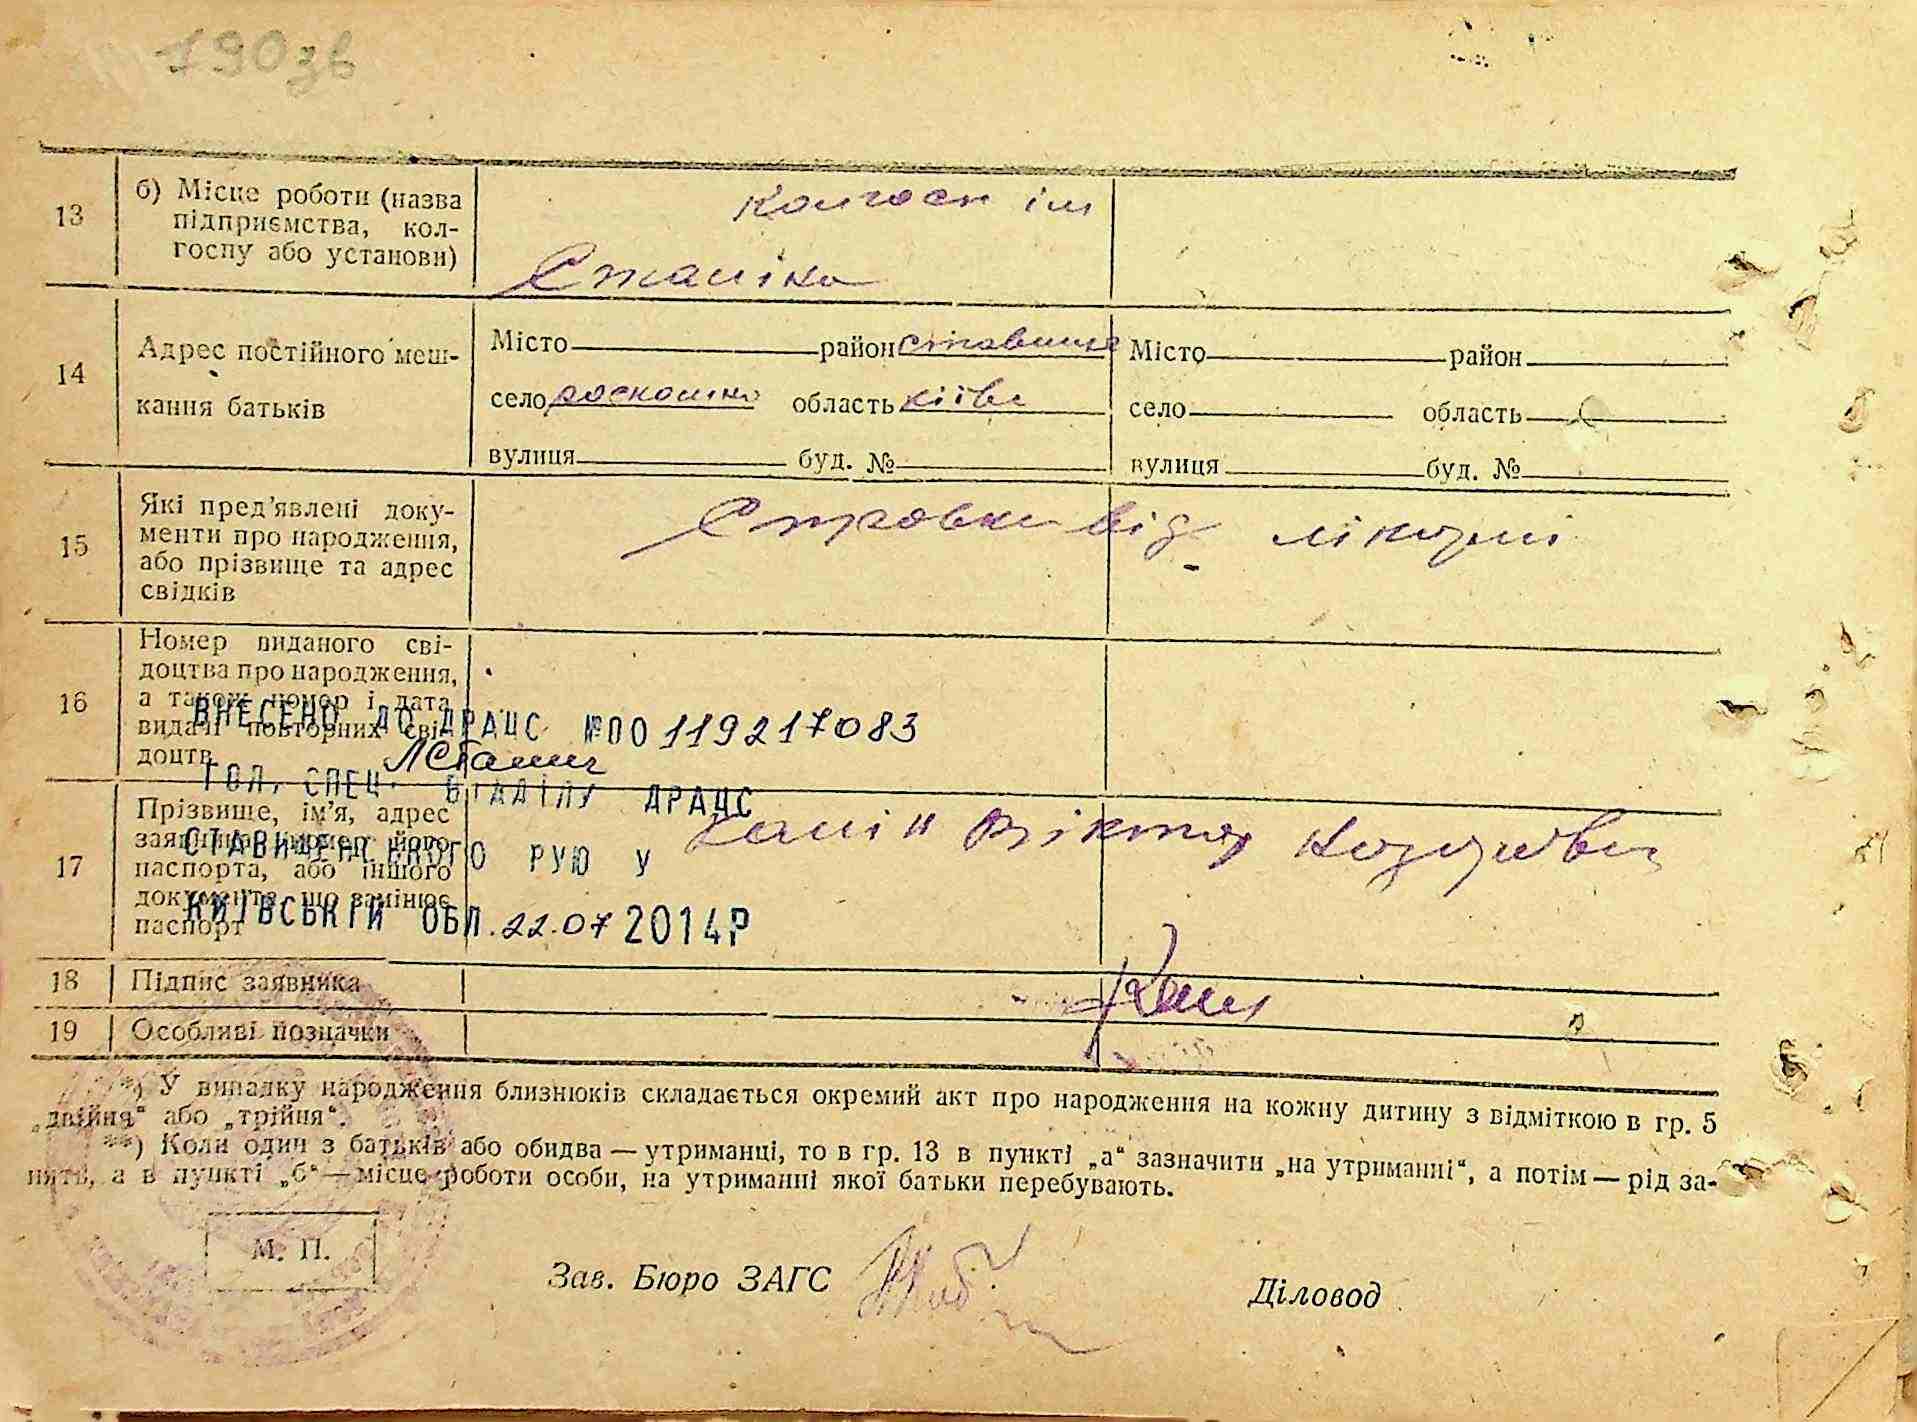 190зв
13
б) Місце роботи (назва
підприємства, кол-
госпу або установи)
колгосп ім
Сталіна
14
Адрес постійного меш-
кання батьків
Місто район ставище
село роскошна область київ
вулиця буд. №
Місто район
село область
вулиця буд. №
15
Які пред’явлені доку-
менти про народження,
або прізвище та адрес
свідків
Справка від лікарні
16
Номер виданого сві-
доцтва про народження,
а також номер і дата
видачі повторних сві-
доцтв
ВНЕСЕНО ДО ДРАЦС №00119217083
ГОЛ. СПЕЦ. ВІДДІЛУ ДРАЦС
СТАВИЩЕНСЬКОГО РУЮ У
КИЇВСЬКІЙ ОБЛ. 22.07 2014Р
17
Прізвище, ім’я, адрес
заявника, номер його
паспорта, або іншого
документа, що замінює
паспорт
Віктор
18
Підпис заявника
19
Особливі позначки
*) У випадку народження близнюків складається окремий акт про народження на кожну дитину з відміткою в гр. 5
„двійня“ або „трійня“.
**) Коли один з батьків або обидва — утриманці, то в гр. 13 в пункті „а“ зазначити „на утриманні“, а потім — рід за-
нять, а в пункті „б“ — місце роботи особи, на утриманні якої батьки перебувають.
М. П.
Зав. Бюро ЗАГС
Діловод